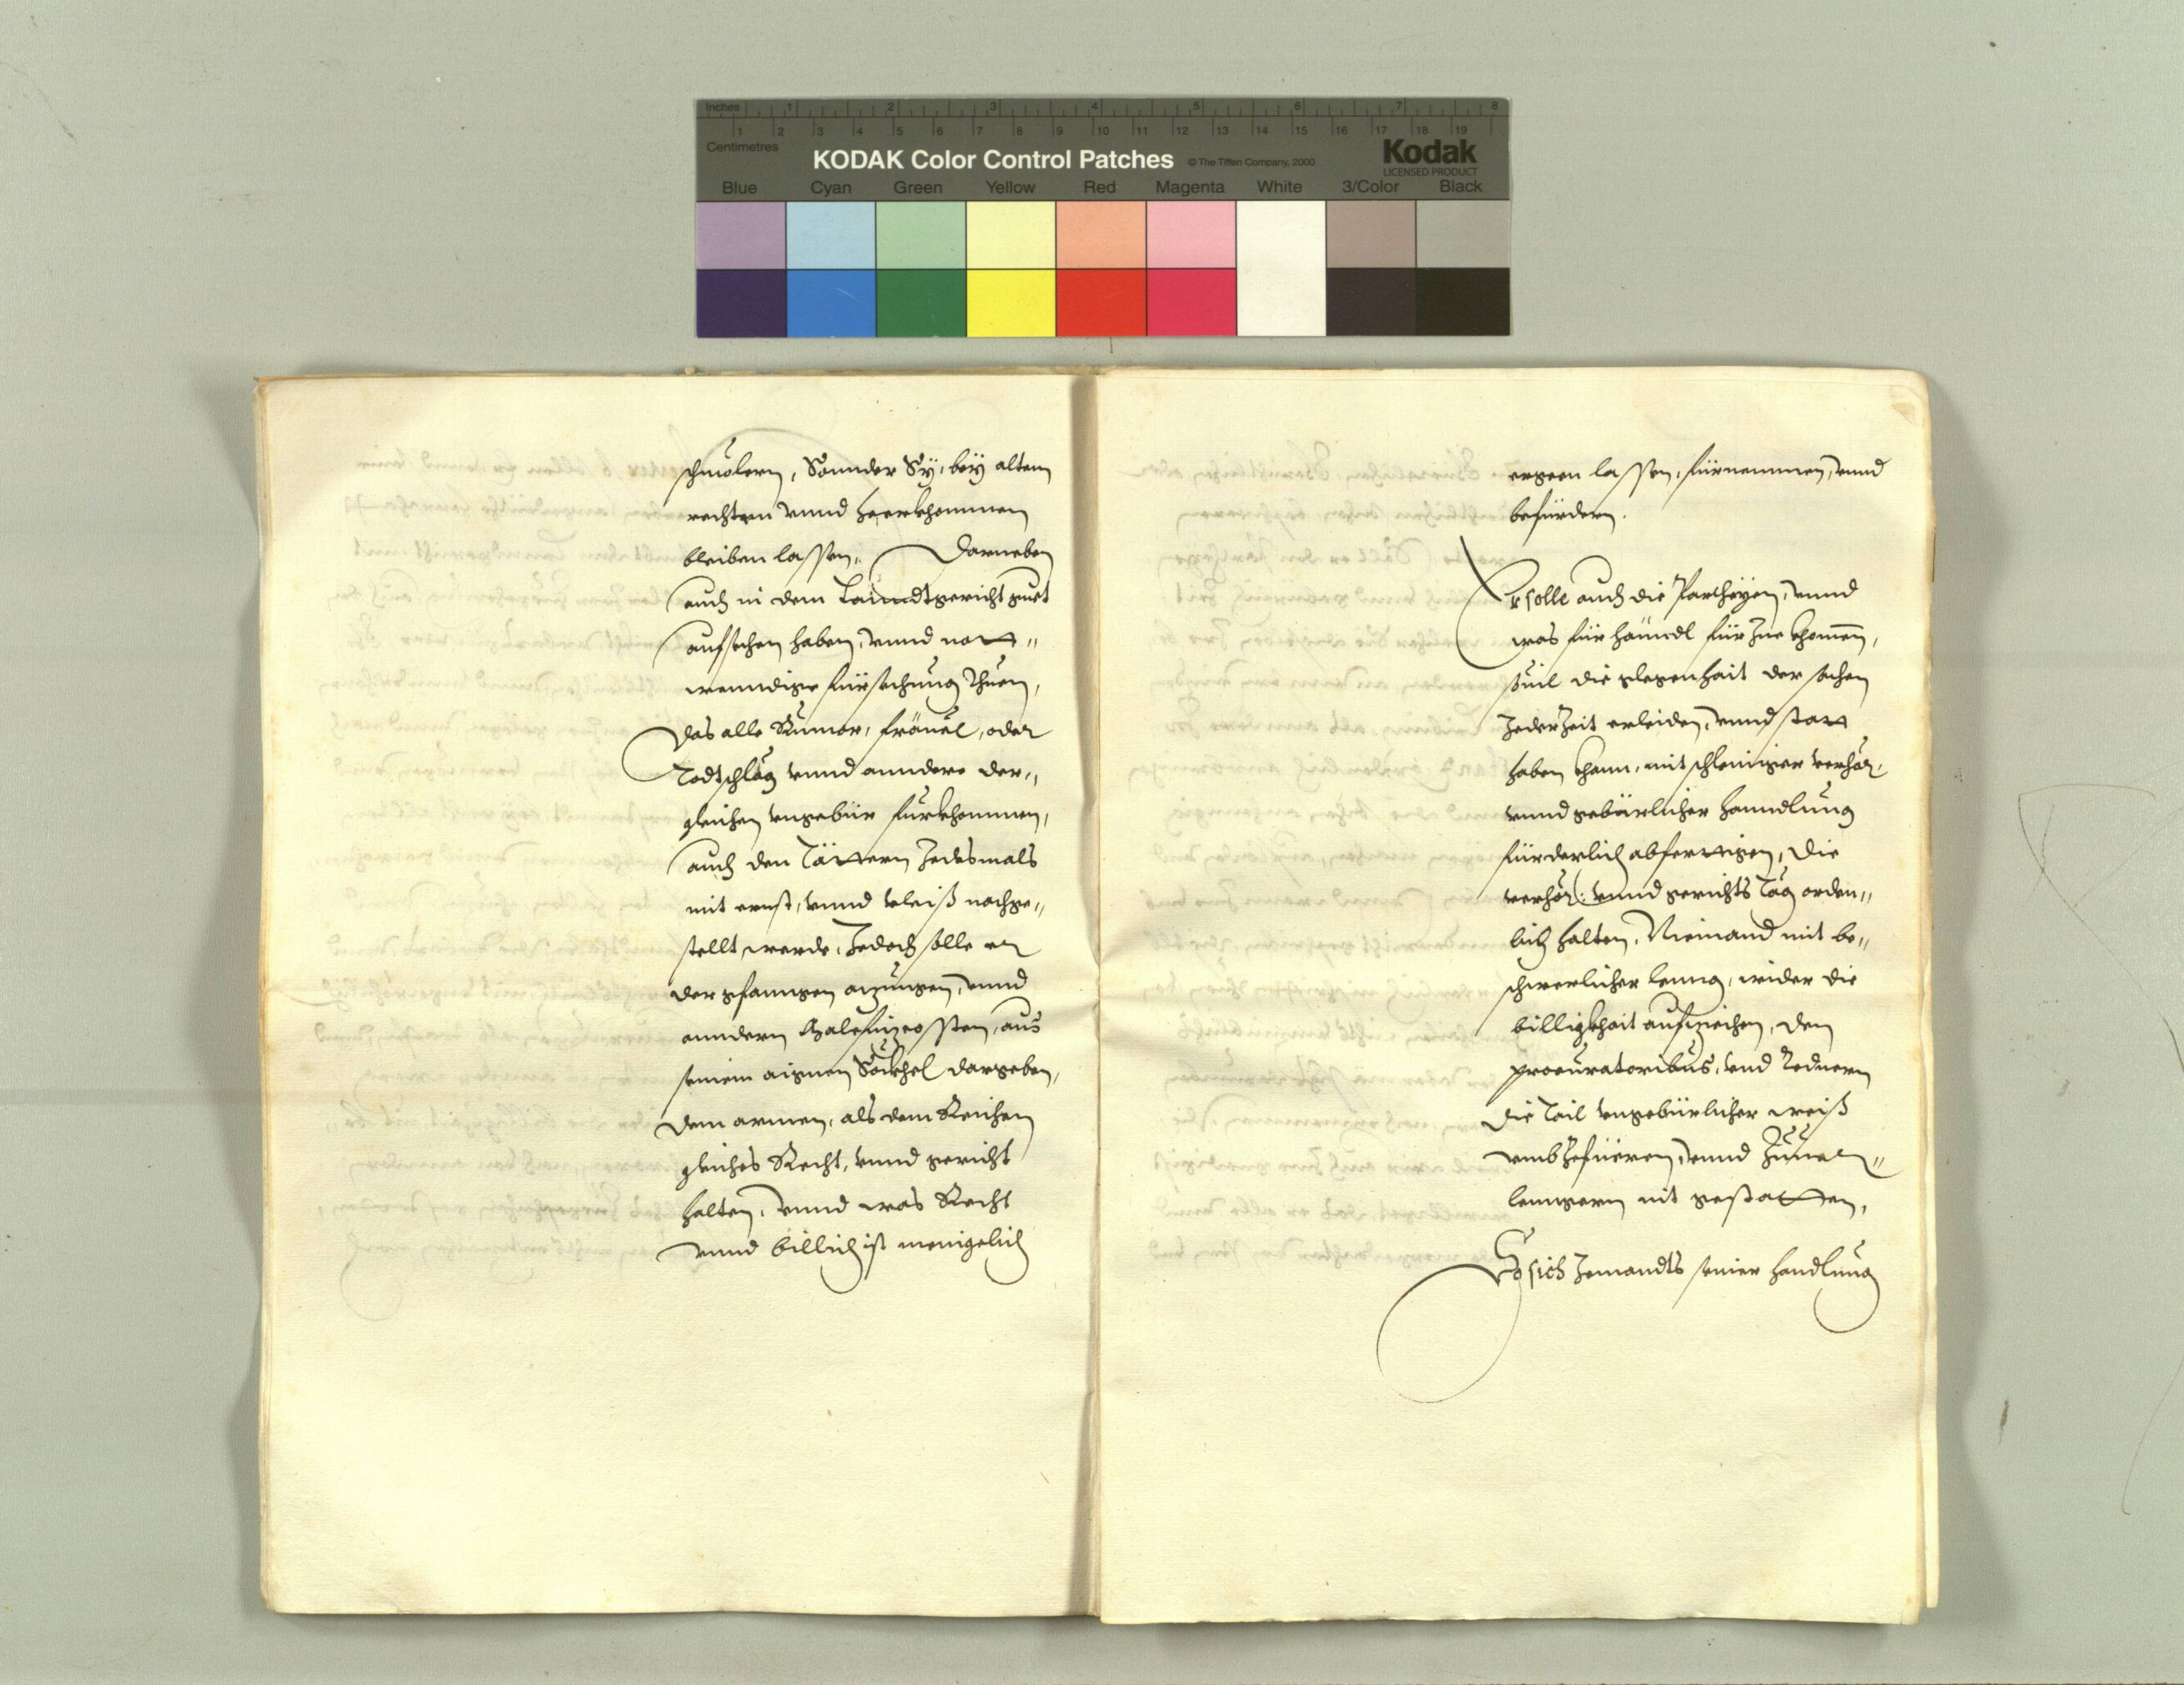 Inches 1 2 3 4 5 6 7 8
1 2 3 4 5 6 7 8 9 10 11 12 13 14 15 16 17 18 19
Centimetres
KODAK Color Control Patches © The Tiffen Company, 2000 Kodak
LICENSED PRODUCT
Blue Cyan Green Yellow Red Magenta White 3/Color Black
schmölern, Sonnder Sÿ, beÿ altem
rechten vnnd heerkhommen
bleiben lassen, Darneben
auch in dem Lanndtgericht guet
aufsehen haben, vnnd nott„
wenndige fürsehung Thuen,
Das alle Rumor, fräuel, oder
Todtschlag vnnd anndere der„
gleichen vngebür fürkhommen,
auch den Tättern Jedesmals
mit ernst, vnnd vleiß nachge„
stellt werde, Jedoch solle er
der gfanngen azungen, vnnd
anndern Malefizcossten, aus
seinem aignen Söckhel dargeben,
Dem armen, als dem Reichen
gleiches Recht, vnnd gericht
halten, vnnd was Recht
vnnd billich ist menigelich
ergeen lassen, fürnemmen, vnnd
befürdern.
Er solle auch die Partheÿen, vnnd
was für hänndl für Jne khomen,
souil die glegenhait der sachen
Jederzeit erleiden, vnnd statt
haben khann, mit schleiniger verhör,
vnnd gebürlicher hanndlung
fürderlich abferttigen, Die
verhör: vnnd gerichts Täg orden„
lich halten, Niemand mit be„
schwerlicher leung, wider die
billigkhait aufziehen, den
procuratoribus, vnd Rednern
die Tail vngebürlicher weiß
vmbzefüeren, vnnd Zuuer„
lenngern nit gestatten,
So sich Jemandts seiner handlung